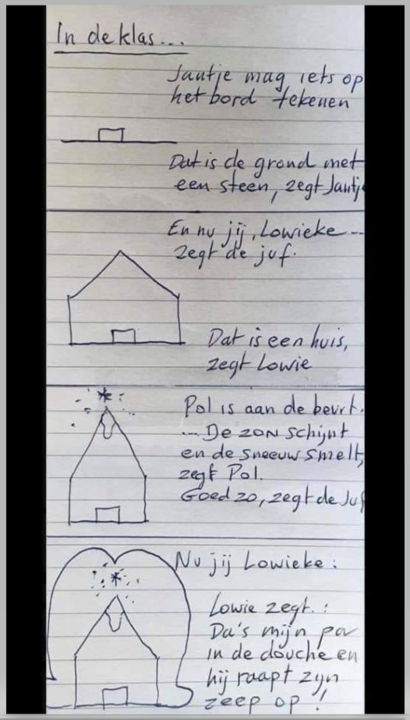 In de klas...
Jantje mag iets op
het bord tekenen
Dat is de grond met
een steen, zegt Jantje
En nu jij, Lowieke ...
zegt de juf.
Dat is een huis,
zegt Lowie
Pol is aan de beurt.
... De zon schijnt
en de sneeuw smelt,
zegt Pol.
Goed zo, zegt de Juf
Nu jij Lowieke :
Lowie zegt. :
Da's mijn pa
in de douche en
hij raapt zijn
zeep op !